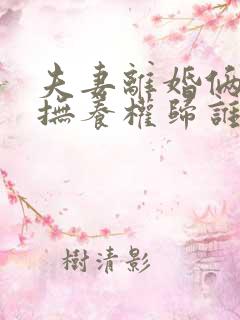 夫妻離婚倆
撫養權歸誰
樹清影